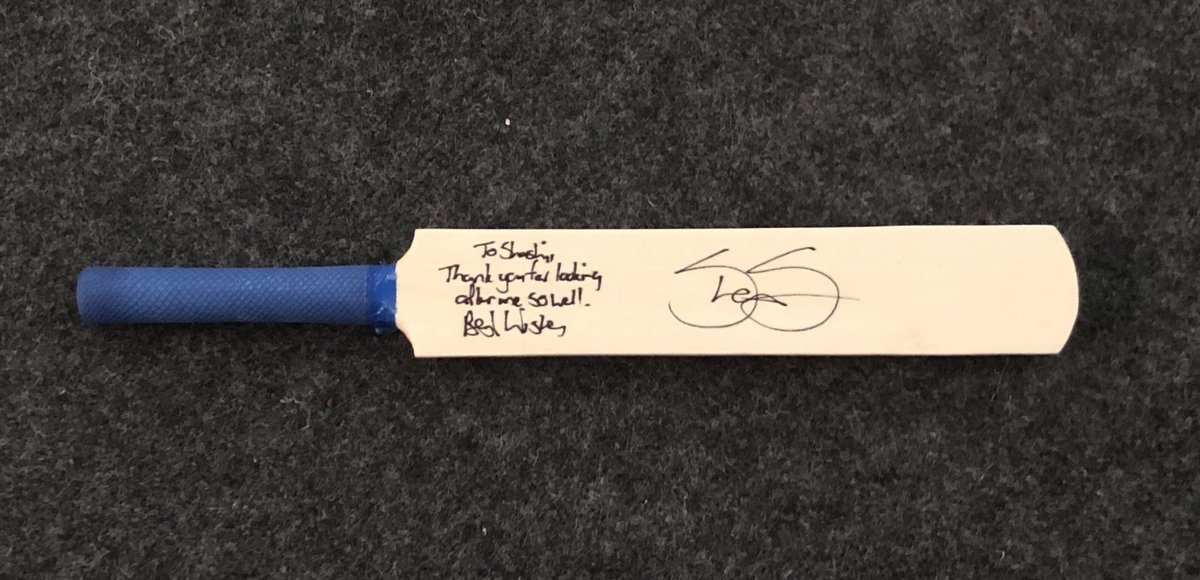 To Shashi,
Thank you for looking
after me so well!.
Best Wishes,
Lee